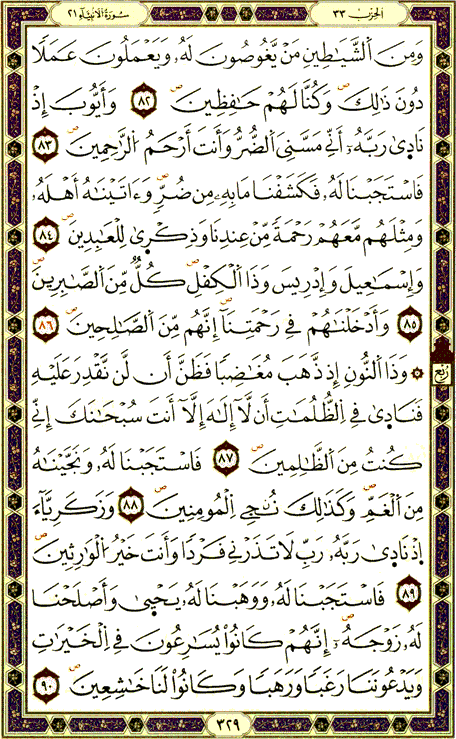 الحزب ٣٣ سورة الأنبياء ٢١
وَمِنَ ٱلشَّيَٰطِينِ مَنْ يَّغُوصُونَ لَهُۥ وَيَعْمَلُونَ عَمَلًا
دُونَ ذَٰلِكَ ۖ وَكُنَّا لَهُمْ حَٰفِظِينَ ۖ ٨٢ وَأَيُّوبَ إِذْ
نَادَىٰ رَبَّهُۥٓ أَنِّے مَسَّنِيَ ٱلضُّرُّ وَأَنتَ أَرْحَمُ ٱلرَّٰحِمِينَ ۖ ٨٣
فَاسْتَجَبْنَا لَهُۥ فَكَشَفْنَا مَا بِهِۦ مِن ضُرٍّ ۖ وَءَاتَيْنَٰهُ أَهْلَهُۥ
وَمِثْلَهُم مَّعَهُمْ رَحْمَةً مِّنْ عِندِنَا وَذِكْر۪ىٰ لِلْعَٰبِدِينَ ۖ ٨٤
وَإِسْمَٰعِيلَ وَإِدْرِيسَ وَذَا ٱلْكِفْلِ ۖ كُلٌّ مِّنَ ٱلصَّٰبِرِينَ ۖ
٨٥ وَأَدْخَلْنَٰهُمْ فِے رَحْمَتِنَآ ۖ إِنَّهُم مِّنَ ٱلصَّٰلِحِينَ ۖ ٨٦
۞ وَذَا ٱلنُّونِ إِذ ذَّهَبَ مُغَٰضِبًا فَظَنَّ أَن لَّن نَّقْدِرَ عَلَيْهِ
ربع
فَنَادَىٰ فِے ٱلظُّلُمَٰتِ أَن لَّآ إِلَٰهَ إِلَّآ أَنتَ سُبْحَٰنَكَ إِنِّے
كُنتُ مِنَ ٱلظَّٰلِمِينَ ۖ ٨٧ فَاسْتَجَبْنَا لَهُۥ وَنَجَّيْنَٰهُ
مِنَ ٱلْغَمِّ ۖ وَكَذَٰلِكَ نُۨجِے ٱلْمُومِنِينَ ۖ ٨٨ وَزَكَرِيَّآءَ
إِذْ نَادَىٰ رَبَّهُۥ رَبِّ لَا تَذَرْنِے فَرْدًا وَأَنتَ خَيْرُ ٱلْوَٰرِثِينَ ۖ
٨٩ فَاسْتَجَبْنَا لَهُۥ وَوَهَبْنَا لَهُۥ يَحْيَىٰ وَأَصْلَحْنَا
لَهُۥ زَوْجَهُۥٓ ۖ إِنَّهُمْ كَانُوا۟ يُسَٰرِعُونَ فِے ٱلْخَيْرَٰتِ
وَيَدْعُونَنَا رَغَبًا وَرَهَبًا وَكَانُوا۟ لَنَا خَٰشِعِينَ ۖ ٩٠
٣٢٩